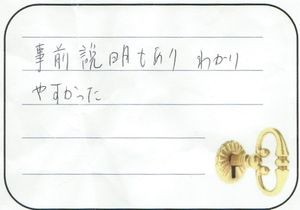 事前説明もあり わかり
やすかった